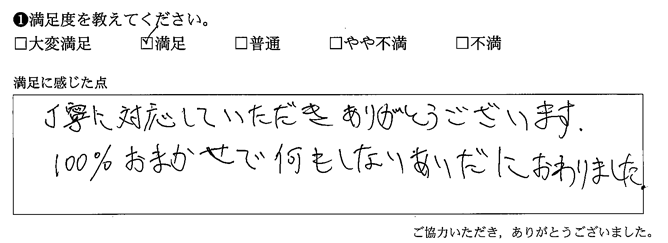 ❶満足度を教えてください。
□大変満足 ☑満足 □普通 □やや不満 □不満
満足に感じた点
丁寧に対応していただきありがとうございます.
100%おまかせで何もしないあいだにおわりました.
ご協力いただき，ありがとうございました。